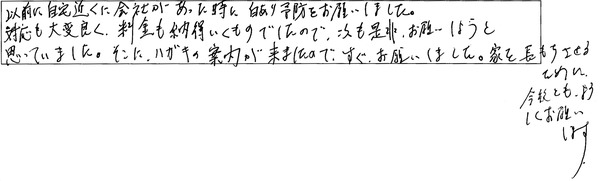 以前に自宅近くに会社があった時に白あり予防をお願いしました。
対応も大変良く、料金も納得いくものでしたので、次も是非、お願いしようと
思っていました。そこに、ハガキの案内が来ましたので、すぐ、お願いしました。家を長もちさせる
ために、
今後とも、よろ
しくお願い
します。